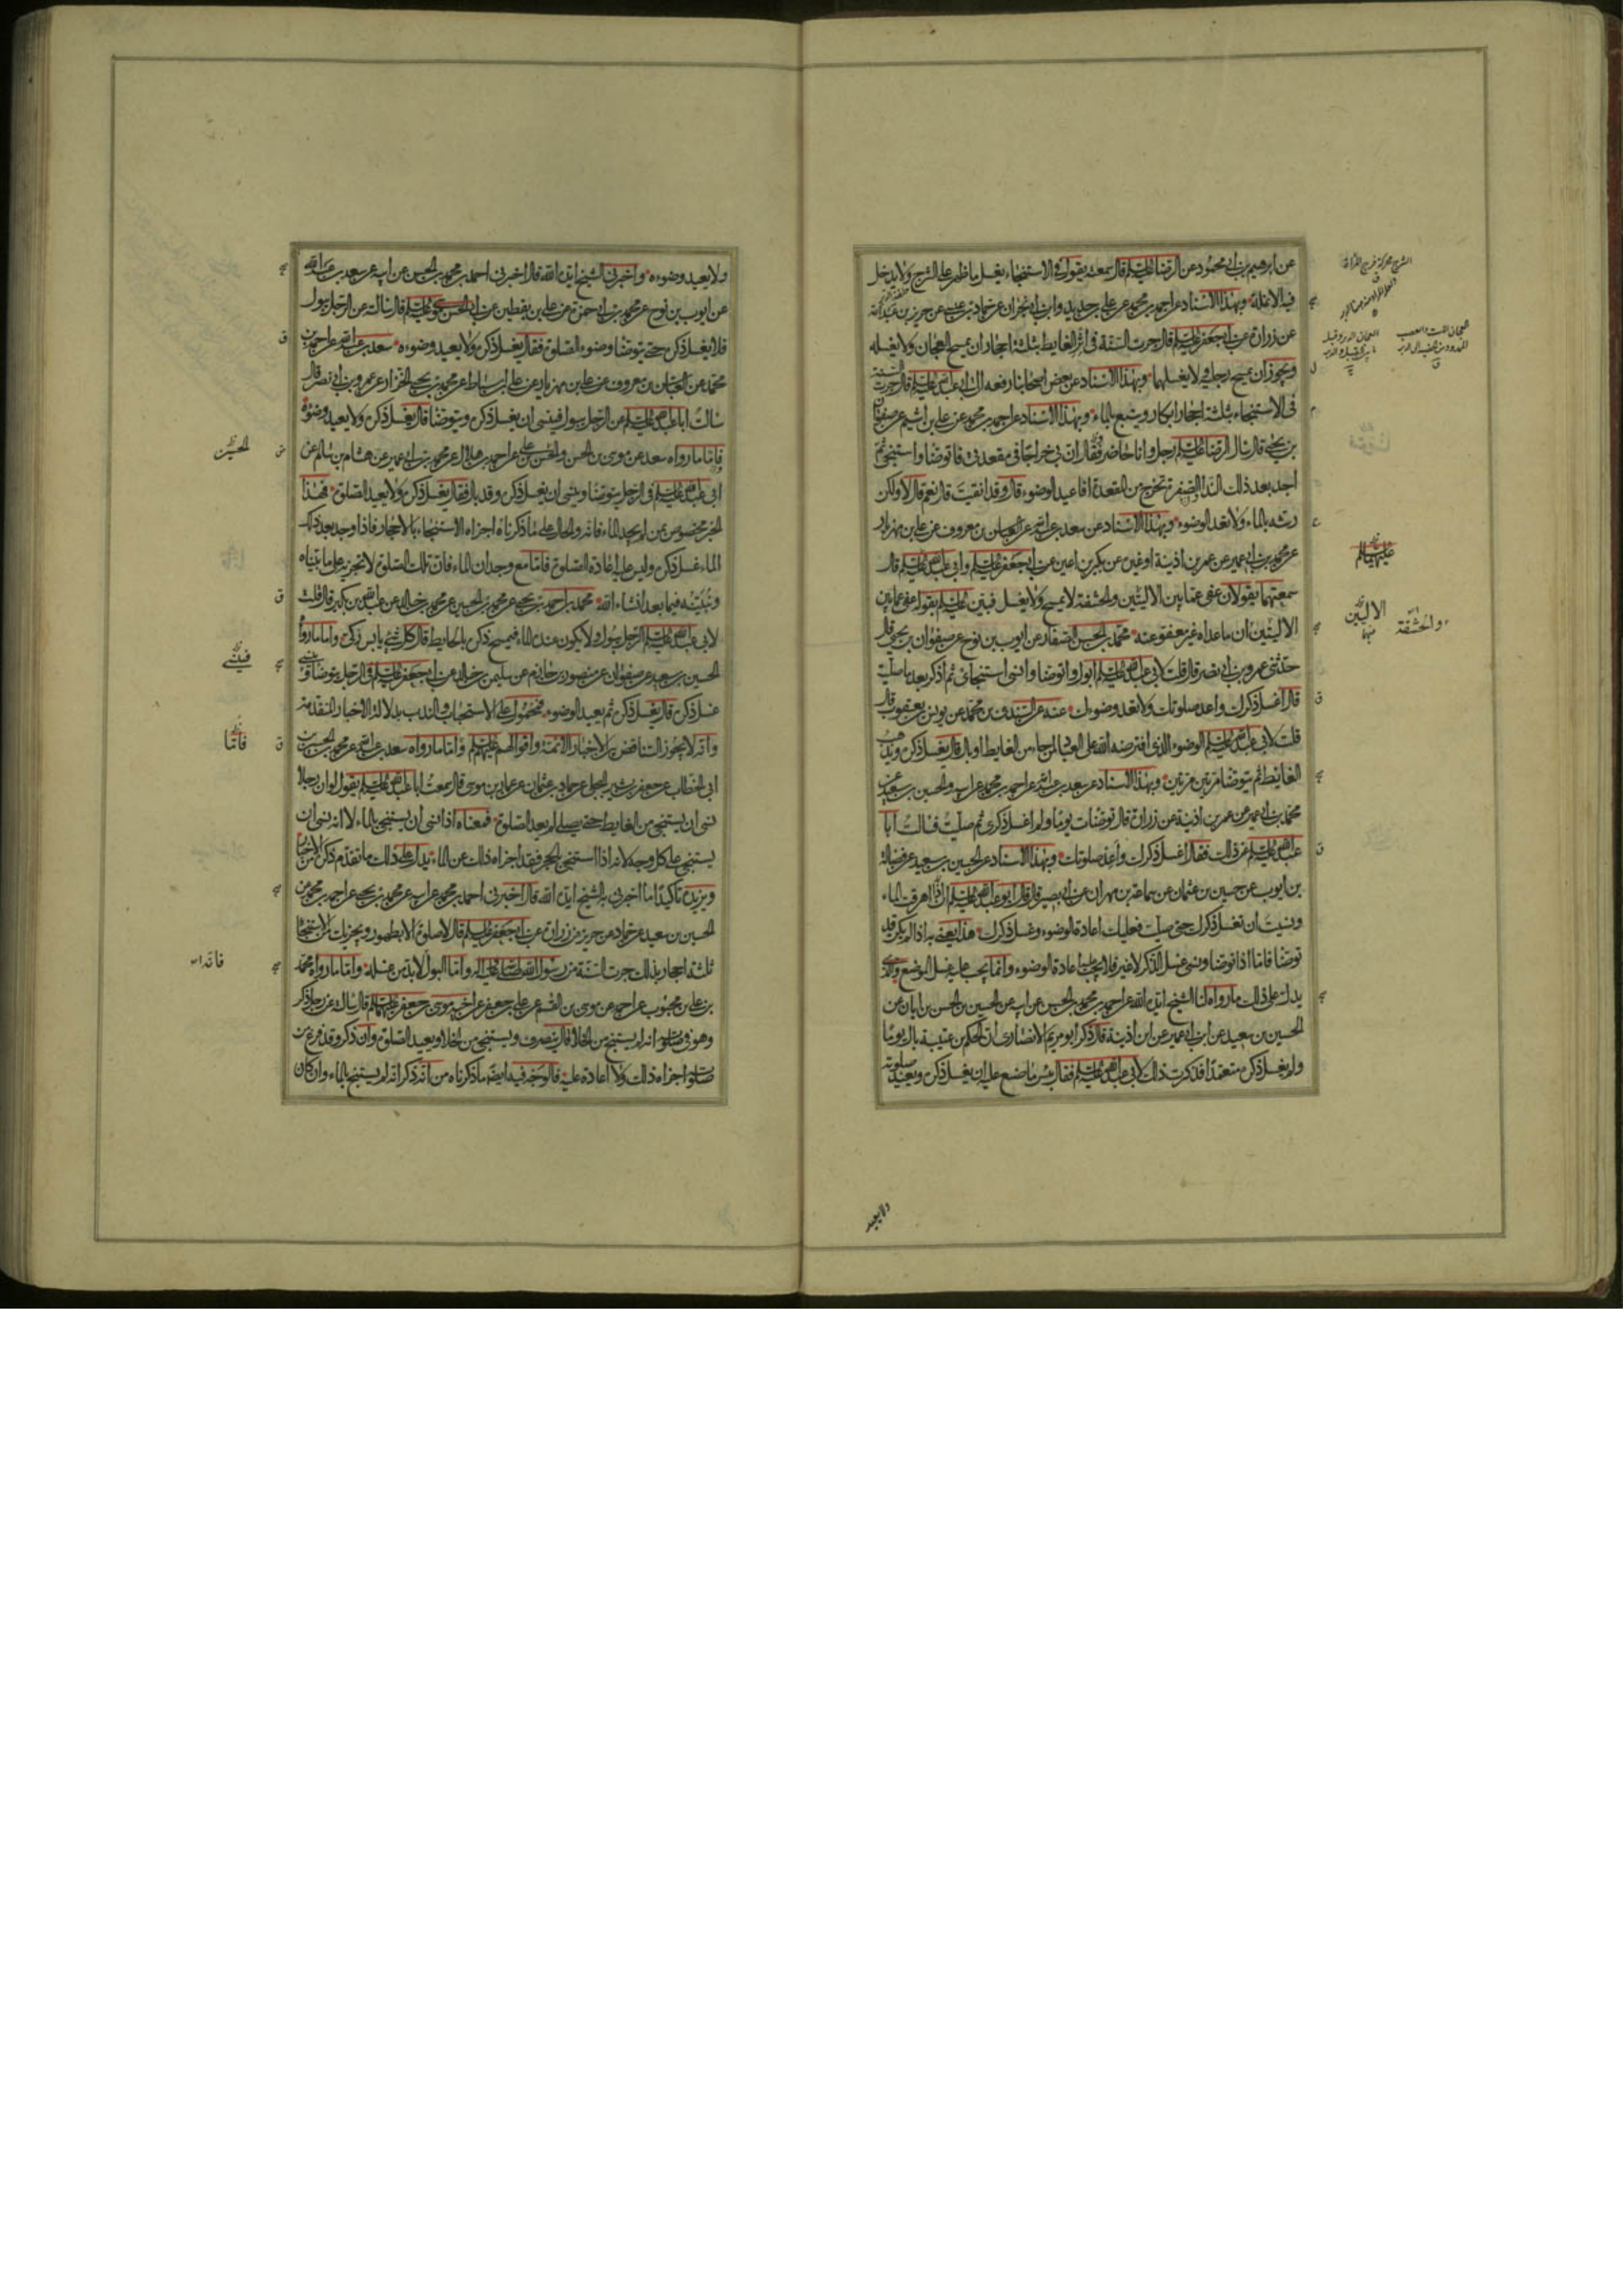 عن ابرهيم بن ابى محمود عن الرضا عليه السلم قال سمعته يقول فى الاستنجاء يغسل ما ظهر على الشرج ولا يدخل
فيه الانملة وبهذا الاسناد عن احمد بن محمد عن على بن حديد وابن ابى نجران عن حماد بن عيسى عن حريز بن عبد الله
عن زرارة عن ابى جعفر عليه السلم قال جرت السنة فى اثر الغايط بثلثة احجار ان يمسح العجان ولا يغسله
ويجوز ان يمسح رجليه ولا يغسلهما وبهذا الاسناد عن بعض اصحابنا رفعه الى ابى عبد الله عليه السلم قال جرت السنة
فى الاستنجاء بثلثة احجار ابكار ويتبع بالماء وبهذا الاسناد عن احمد بن محمد عن على بن اشيم عن صفوان
بن يحيى قال سال الرضا عليه السلم رجل وانا حاضر فقال ان بى خراجا فى مقعدتى فاتوضا واستنجى ثم
اجد بعد ذلك الندا الصفرة تخرج من المقعدة افاعيد الوضوء قال وقد انقيت قال نعم قال لا ولكن
رشه بالماء ولا تعد الوضوء وبهذا الاسناد عن سعد بن عبد الله عن العباس بن معروف عن على بن مهزيار
عن محمد بن ابى عمير عن عمر بن اذينة او غيره عن بكير بن اعين عن ابى جعفر عليه السلم وابى عبد الله عليه السلم قال
سمعتهما يقولان عفى عما بين الاليتين والحشفة لا يمسح ولا يغسل فبين عليه السلم بقوله عفى عما بين
الاليتين ان ما عداه غير معفو عنه محمد بن الحسن الصفار عن ايوب بن نوح عن صفوان بن يحيى قال
حدثنى عمرو بن ابى نصر قال قلت لابى عبد الله عليه السلم ابول واتوضا وانسى استنجائى ثم اذكر بعد ما صليت
قال اغسل ذكرك واعد صلوتك ولا تعد وضوءك عنه عن السندى بن محمد عن يونس بن يعقوب قال
قلت لابى عبد الله عليه السلم الوضوء الذى افترضه الله على العباد لمن جاء من الغايط او بال قال يغسل ذكره ويذهب
الغايط ثم يتوضا مرتين مرتين وبهذا الاسناد عن سعد بن عبد الله عن احمد بن محمد عن ابيه والحسين بن سعيد عن
محمد بن ابى عمير عن عمر بن اذينة عن زرارة قال توضات يوما ولم اغسل ذكرى ثم صليت فسالت ابا
عبد الله عليه السلم عن ذلك فقال اغسل ذكرك واعد صلوتك وبهذا الاسناد عن الحسين بن سعيد عن فضالة
بن ايوب عن حسين بن عثمان عن سماعة بن مهران عن ابى بصير قال قال ابو عبد الله عليه السلم ان اهرقت الماء
ونسيت ان تغسل ذكرك حتى صليت فعليك اعادة الوضوء وغسل ذكرك هذا يعنى به اذا لم يكن قد
توضا فاما اذا توضا ونسى غسل الذكر لا غير فلا يجب عليه اعادة الوضوء وانما يجب عليه غسل الموضع والذى
يدل على ذلك ما رواه لنا الشيخ ايده الله عن احمد بن محمد بن الحسن عن ابيه عن الحسين بن الحسن بن ابان عن
الحسين بن سعيد عن ابن ابى عمير عن ابن اذينة قال ذكر ابو مريم الانصارى ان الحكم بن عتيبة بال يوما
ولم يغسل ذكره متعمدا فذكرت ذلك لابى عبد الله عليه السلم فقال بئس ما صنع عليه ان يغسل ذكره ويعيد صلوته
عليهما السلم
الاليين
والحشفة
ولا يعيد
ولا يعيد وضوءه واخبرنى الشيخ ايده الله قال اخبرنى احمد بن محمد بن الحسن عن ابيه عن سعد بن عبد الله
عن ايوب بن نوح عن محمد بن ابى حمزة عن على بن يقطين عن ابى الحسن موسى عليه السلم قال سالته عن الرجل يبول
فلا يغسل ذكره حتى يتوضا وضوء الصلوة فقال يغسل ذكره ولا يعيد وضوءه سعد بن عبد الله عن احمد بن
محمد عن العباس بن معروف عن على بن مهزيار عن على بن اسباط عن محمد بن يحيى الخزاز عن عمرو بن ابى نصر قال
سالت ابا عبد الله عليه السلم عن الرجل يبول فينسى ان يغسل ذكره ويتوضا قال يغسل ذكره ولا يعيد وضوءه
فاما ما رواه سعد عن موسى بن الحسن والحسن بن على عن احمد بن هلال عن محمد بن ابى عمير عن هشام بن سالم عن
ابى عبد الله عليه السلم فى الرجل يتوضا وينسى ان يغسل ذكره وقد بال فقال يغسل ذكره ولا يعيد الصلوة فهذا
الخبر مخصوص بمن لم يجد الماء فانه والحال على ما ذكرناه اجزاه الاستنجاء بالاحجار فاذا وجد بعد ذلك
الماء غسل ذكره وليس عليه اعادة الصلوة فاما مع وجدان الماء فان تلك الصلوة لا تجزيه على ما بيناه
ونبينه فيما بعد انشاء الله محمد بن احمد بن يحيى عن محمد بن الحسين عن محمد بن خالد عن عبد الله بن بكير قال قلت
لابى عبد الله عليه السلم الرجل يبول ولا يكون عنده الماء فيمسح ذكره بالحايط قال كل شئ يابس زكى واما ما رواه
الحسين بن سعيد عن صفوان عن منصور بن حازم عن سليمن بن خالد عن ابى جعفر عليه السلم فى الرجل يتوضا فينسى
غسل ذكره قال يغسل ذكره ثم يعيد الوضوء فمحمول على الاستحباب والندب بدلالة الاخبار المتقدمة
وانه لا يجوز التناقض بين اخبار الائمة واقوالهم عليهم السلم واما ما رواه سعد بن عبد الله عن محمد بن الحسين
ابى الخطاب عن جعفر بن بشير البجلى عن حماد بن عثمان عن عمار بن موسى قال سمعت ابا عبد الله عليه السلم يقول لو ان رجلا
نسى ان يستنجى من الغايط حتى يصلى لم يعد الصلوة فمعناه اذا نسى ان يستنجى بالماء لا انه نسى ان
يستنجى على كل وجه لانه اذا استنجى بالحجر فقد اجزاه ذلك عن الماء يدل على ذلك ما تقدم ذكره من الاخبار
ويزيده تاكيدا ما اخبرنى به الشيخ ايده الله قال اخبرنى احمد بن محمد عن ابيه عن محمد بن يحيى عن احمد بن محمد عن
الحسين بن سعيد عن حماد عن حريز عن زرارة عن ابى جعفر عليه السلم قال لا صلوة الا بطهور ويجزيك من الاستنجاء
ثلثة احجار بذلك جرت السنة من رسول الله صلى الله عليه واله واما البول لا بد من غسله واما ما رواه محمد
بن على بن محبوب عن احمد عن موسى بن القسم عن على بن جعفر عن اخيه موسى بن جعفر عليهما السلم قال سالته عن رجل ذكر
وهو فى صلوته انه لم يستنج من الخلا قال ينصرف ويستنجى من الخلا ويعيد الصلوة وان ذكر وقد فرغ من
صلوته اجزاه ذلك ولا اعادة عليه فالوجه فيه ايضا ما ذكرناه من انه ذكر انه لم يستنج بالماء وان كان
الحسين
فينسى
فاما
فانه